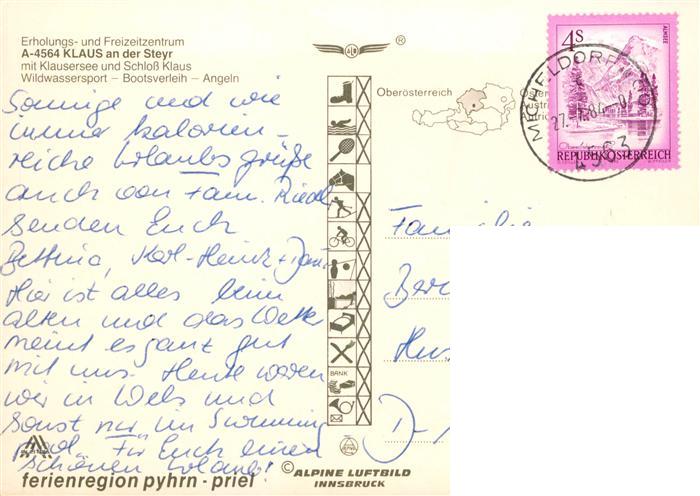 Erholungs- und Freizeitzentrum
A-4564 KLAUS an der Steyr
mit Klausersee und Schloß Klaus
Wildwassersport – Bootsverleih – Angeln
ALB
®
Oberösterreich
4S
ALMSEE
REPUBLIK ÖSTERREICH
MICHELDORF
4563
Sonnige und wie
immer kalorien-
reiche Urlaubsgrüße
auch von Fam. Riedl
senden Euch
Bettina, Karl-Heinz +
Hier ist alles beim
alten und das Wetter
meint es ganz gut
mit uns. Heute waren
wir in Wels und
sonst nur im Swimming
pool. Für Euch einen
schönen Urlaub!
Familie
Ber
D-
BANK
ferienregion pyhrn - priel
© ALPINE LUFTBILD
INNSBRUCK